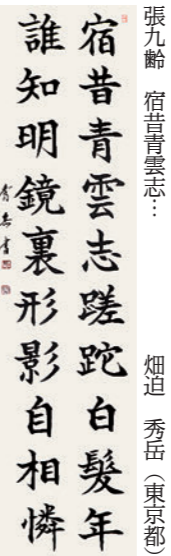 張九齢　宿昔青雲志…　畑迫　秀岳（東京都）
宿昔青雲志蹉跎白髮年
誰知明鏡裏形影自相憐